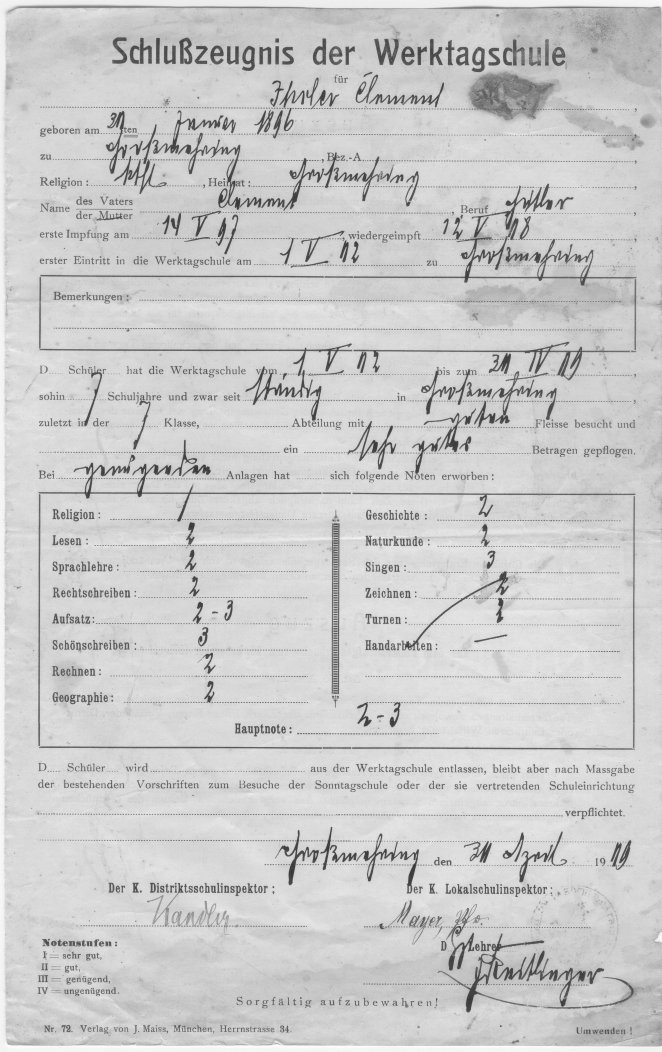 Schlußzeugnis der Werktagschule
für
Clement
geboren am 30ten Januar 1896
zu Großmehring, Bez.-A.
Religion: kthl., Heimat: Großmehring
Name des Vaters Clement, Beruf Gütler
der Mutter
erste Impfung am 14 V 97, wiedergeimpft 12 V 08
erster Eintritt in die Werktagschule am 1 V 02 zu Großmehring
Bemerkungen:
D.... Schüler.... hat die Werktagschule vom 1 V 02 bis zum 30 IV 09,
sohin 7 Schuljahre und zwar seit ständig in Großmehring,
zuletzt in der 7 Klasse, Abteilung mit gutem Fleisse besucht und
ein sehr gutes Betragen gepflogen.
Bei genügenden Anlagen hat sich folgende Noten erworben:
Religion: 1
Lesen: 2
Sprachlehre: 2
Rechtschreiben: 2
Aufsatz: 2-3
Schönschreiben: 3
Rechnen: 2
Geographie: 2
Geschichte: 2
Naturkunde: 2
Singen: 3
Zeichnen: 2
Turnen: 2
Handarbeiten: —
Hauptnote: 2-3
D.... Schüler.... wird aus der Werktagschule entlassen, bleibt aber nach Massgabe
der bestehenden Vorschriften zum Besuche der Sonntagschule oder der sie vertretenden Schuleinrichtung
verpflichtet.
Großmehring den 30 April 1909
Der K. Distriktsschulinspektor: Der K. Lokalschulinspektor:
Kandler Mayer,
D Lehrer
Notenstufen:
I = sehr gut,
II = gut,
III = genügend,
IV = ungenügend.
Sorgfältig aufzubewahren!
Nr. 72. Verlag von J. Maiss, München, Herrnstrasse 34. Umwenden!